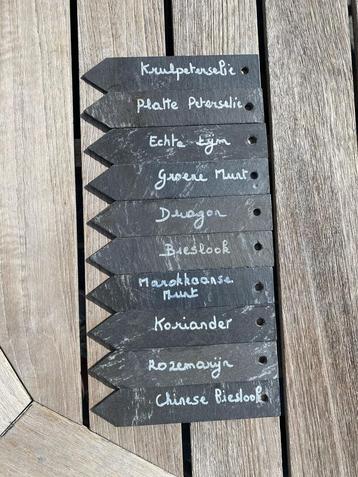 Krulpeterselie
Platte Peterselie
Echte tijm
Groene Munt
Dragon
Bieslook
Marokkaanse
Munt
Koriander
Rozemarijn
Chinese Bieslook